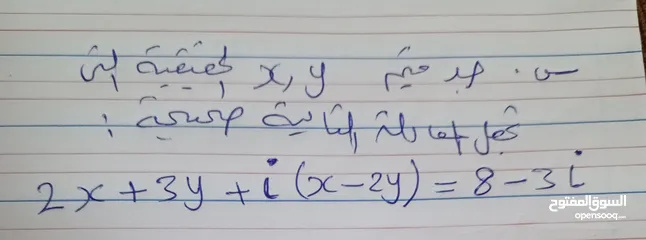 س. جد قيم x, y الحقيقية التي
تجعل المعادلة التالية صحيحة :
2x + 3y + i (x - 2y) = 8 - 3i
السوق المفتوح
opensooq.com